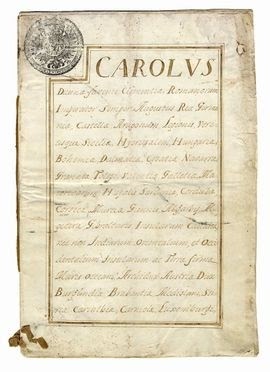 CAROLVS
Divina favente Clementia Romanorum
Imperator Semper Augustus Rex Germa
nia, Castella Aragonum, Legionis, Utri
usque Sicilia, Hyerusalem, Hungaria,
Bohemia, Dalmatia, Croatia Navarra
Granata Toleti, Valentia, Gallecia, Ma
Hispalis Sardinia, Corduba
Murcia, Giennis Algarbij
Gibraltaris Insularum Canaria
nec non Indiarum Orientalium, et Oc
cidentalium Insularum ac Terra firma
Maris oceani, Archidux Austria Dux
Burgundia, Brabantia Mediolani, Sty
ria Carinthia, Carniola, Luxemburgi